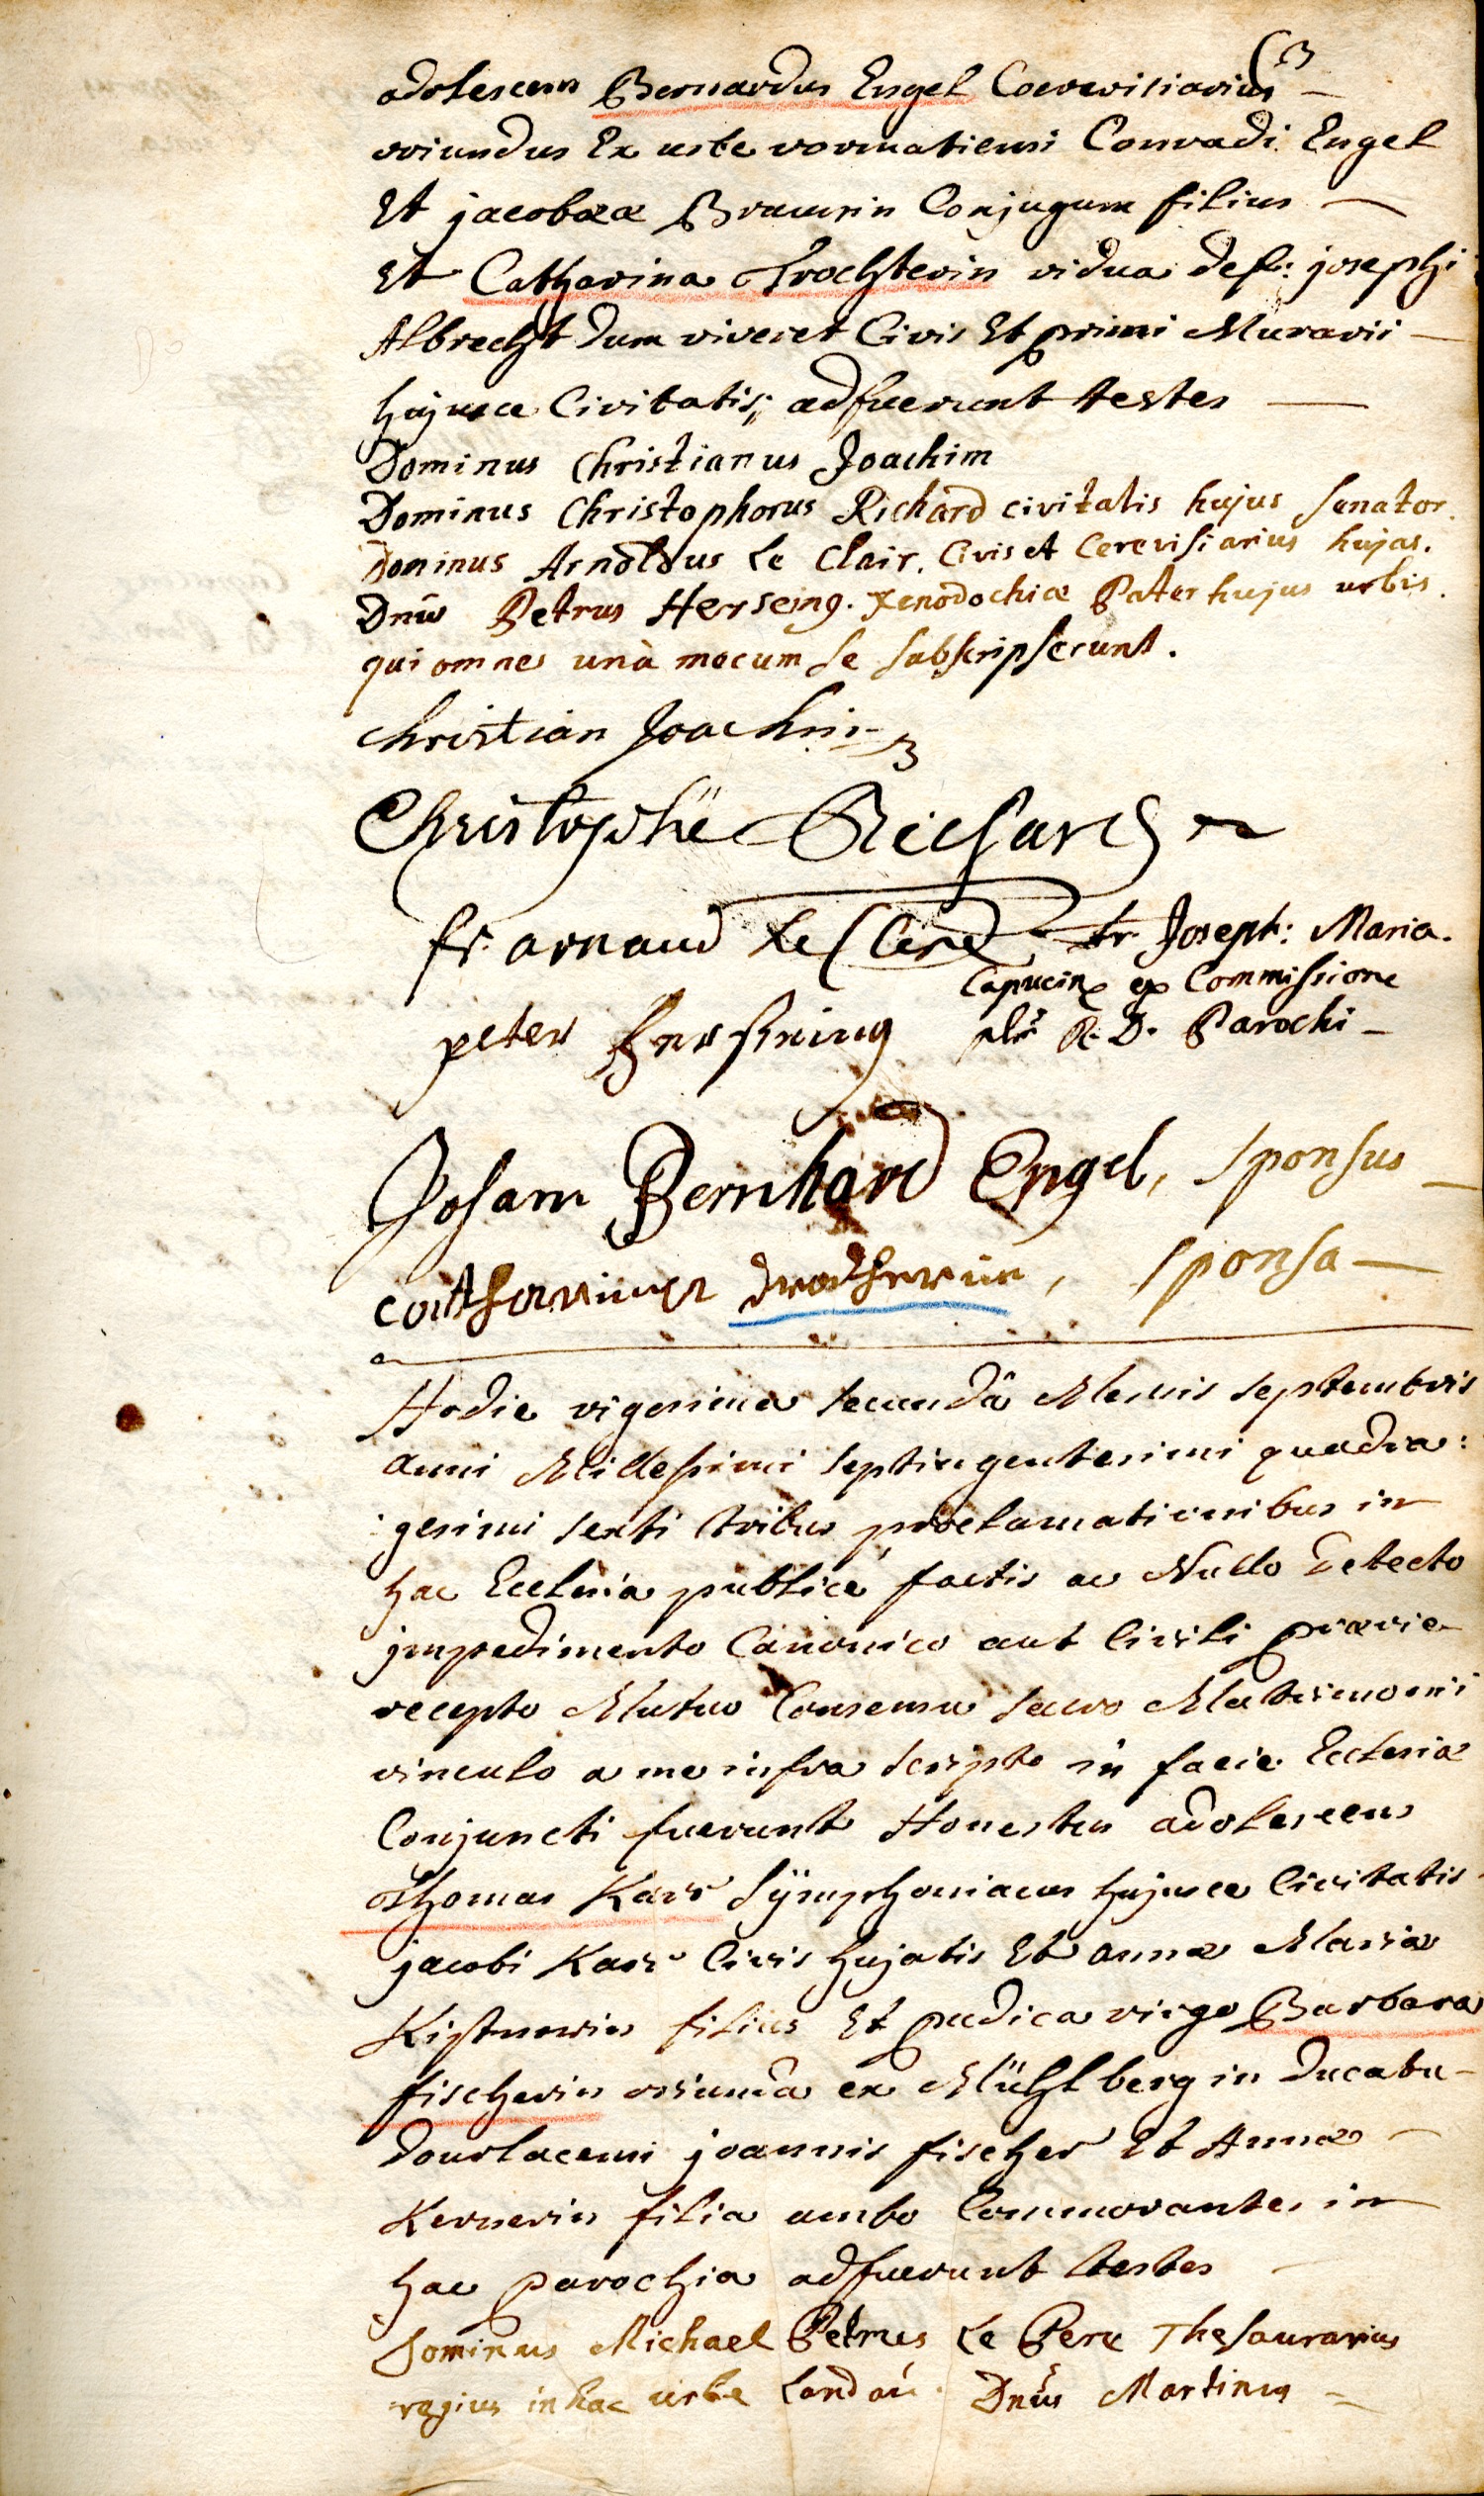 adolescens Bernardus Engel Coerevisiarius —
oriundus Ex urbe wormatiensi Conradi Engel
Et jacobææ Conjugum filius —
Et Catharina Trochterin vidua def: josephi
Albrecht dum viveret Civis Et primi Murarii —
hujusce Civitatis; adfuerunt testes —
Dominus Christianus Joachim
Dominus Christophorus Richard civitatis hujus Senator.
Dominus Arnoldus le Clair. Civis et Cerevisiarius hujas.
Dnus Petrus Herseing. Xenodochiæ Pater hujus urbis.
qui omnes unà mecum se subscripserunt.
christian Joachim
Christophe Richard
fr. arnaud le Clere fr. Joseph: Maria.
Capucin9 ex Commissione
peter R. D. Parochi —
Johann Bernhard Engel, sponsus —
catharina , sponsa —
Hodie vigesima secundâ Mensis septembris
anni Millesimi septingentesimi quadra:
:gesimi sexti tribus proclamationibus in
hac Ecclesia publicè factis ac Nullo detecto
jmpedimento Canonico aut Civili prævie
recepto Mutuo Consensu sacro Matrimonii
vinculo a me infra scripto in facie Ecclesiæ
Conjuncti fuerunt Honestus adolescens
Thomas Karr Sÿmphoniacus hujusce Civitatis
jacobi Karr Civis hujatis Et annæ Mariæ
Kistnerin filius Et pudica virgo Barbara
fischerin oriunda ex Mühlberg in Ducatu
Dourlacensi joannis fischer Et Annæ —
Kernerin filia ambo Commorantes in
hac parochia adfuerunt testes
Dominus Michael Petrus Le Pere Thesaurarius
regius in hac urbe Landau. Dnus Martinus —